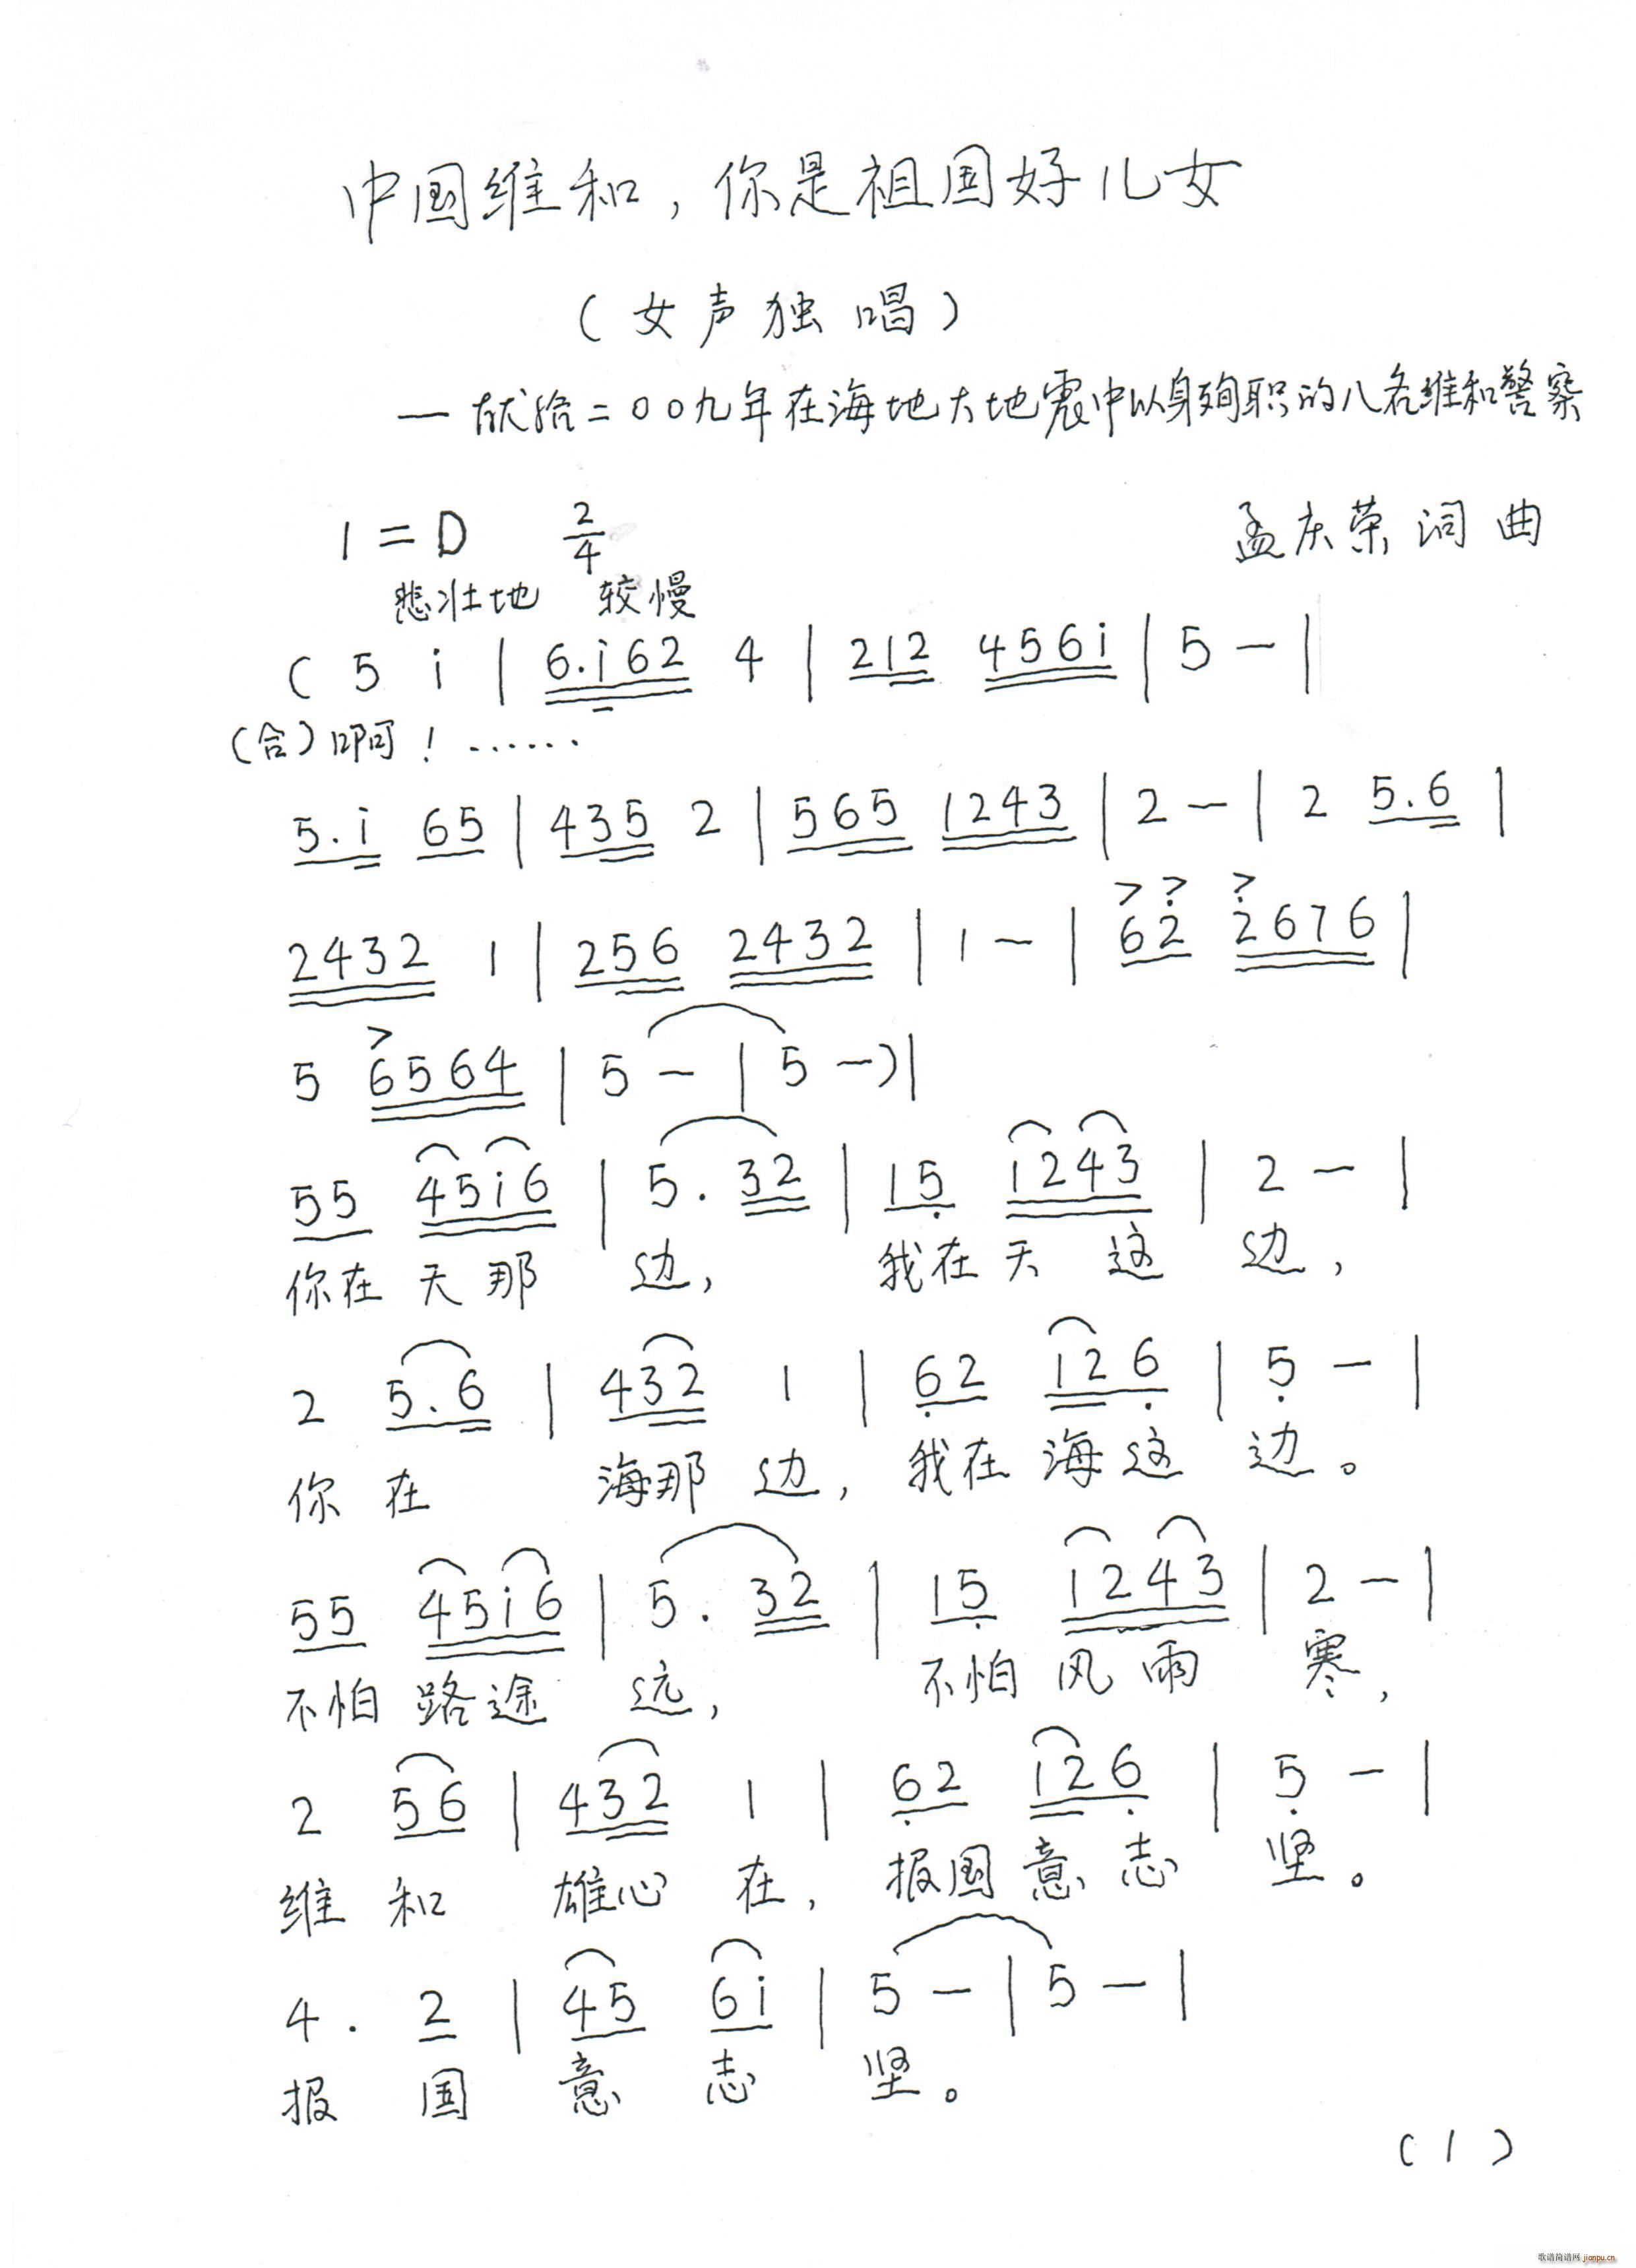 中国维和，你是祖国好儿女
（女声独唱）
— 献给二00九年在海地大地震中以身殉职的八名维和警察
1=D 2/4 孟庆荣 词 曲
悲壮地 较慢
( 5 i | 6.i62 4 | 212 456i | 5 — |
（合）啊！……
5.i 65 | 435 2 | 565 1243 | 2 — | 2 5.6 |
2432 1 | 256 2432 | 1 — | 62 2676 |
5 6564 | 5 — | 5 — ) |
55 45i6 | 5. 32 | 15 1243 | 2 — |
你在天那 边， 我在天 这 边，
2 5.6 | 432 1 | 62 126 | 5 — |
你 在 海那 边，我在 海这 边。
55 45i6 | 5. 32 | 15 1243 | 2 — |
不怕路途 远， 不怕风雨 寒，
2 56 | 432 1 | 62 126 | 5 — |
维 和 雄心 在，报国意志 坚。
4 . 2 | 45 6i | 5 — | 5 — |
报 国 意 志 坚。
(1)
歌谱简谱网 jianpu.cn